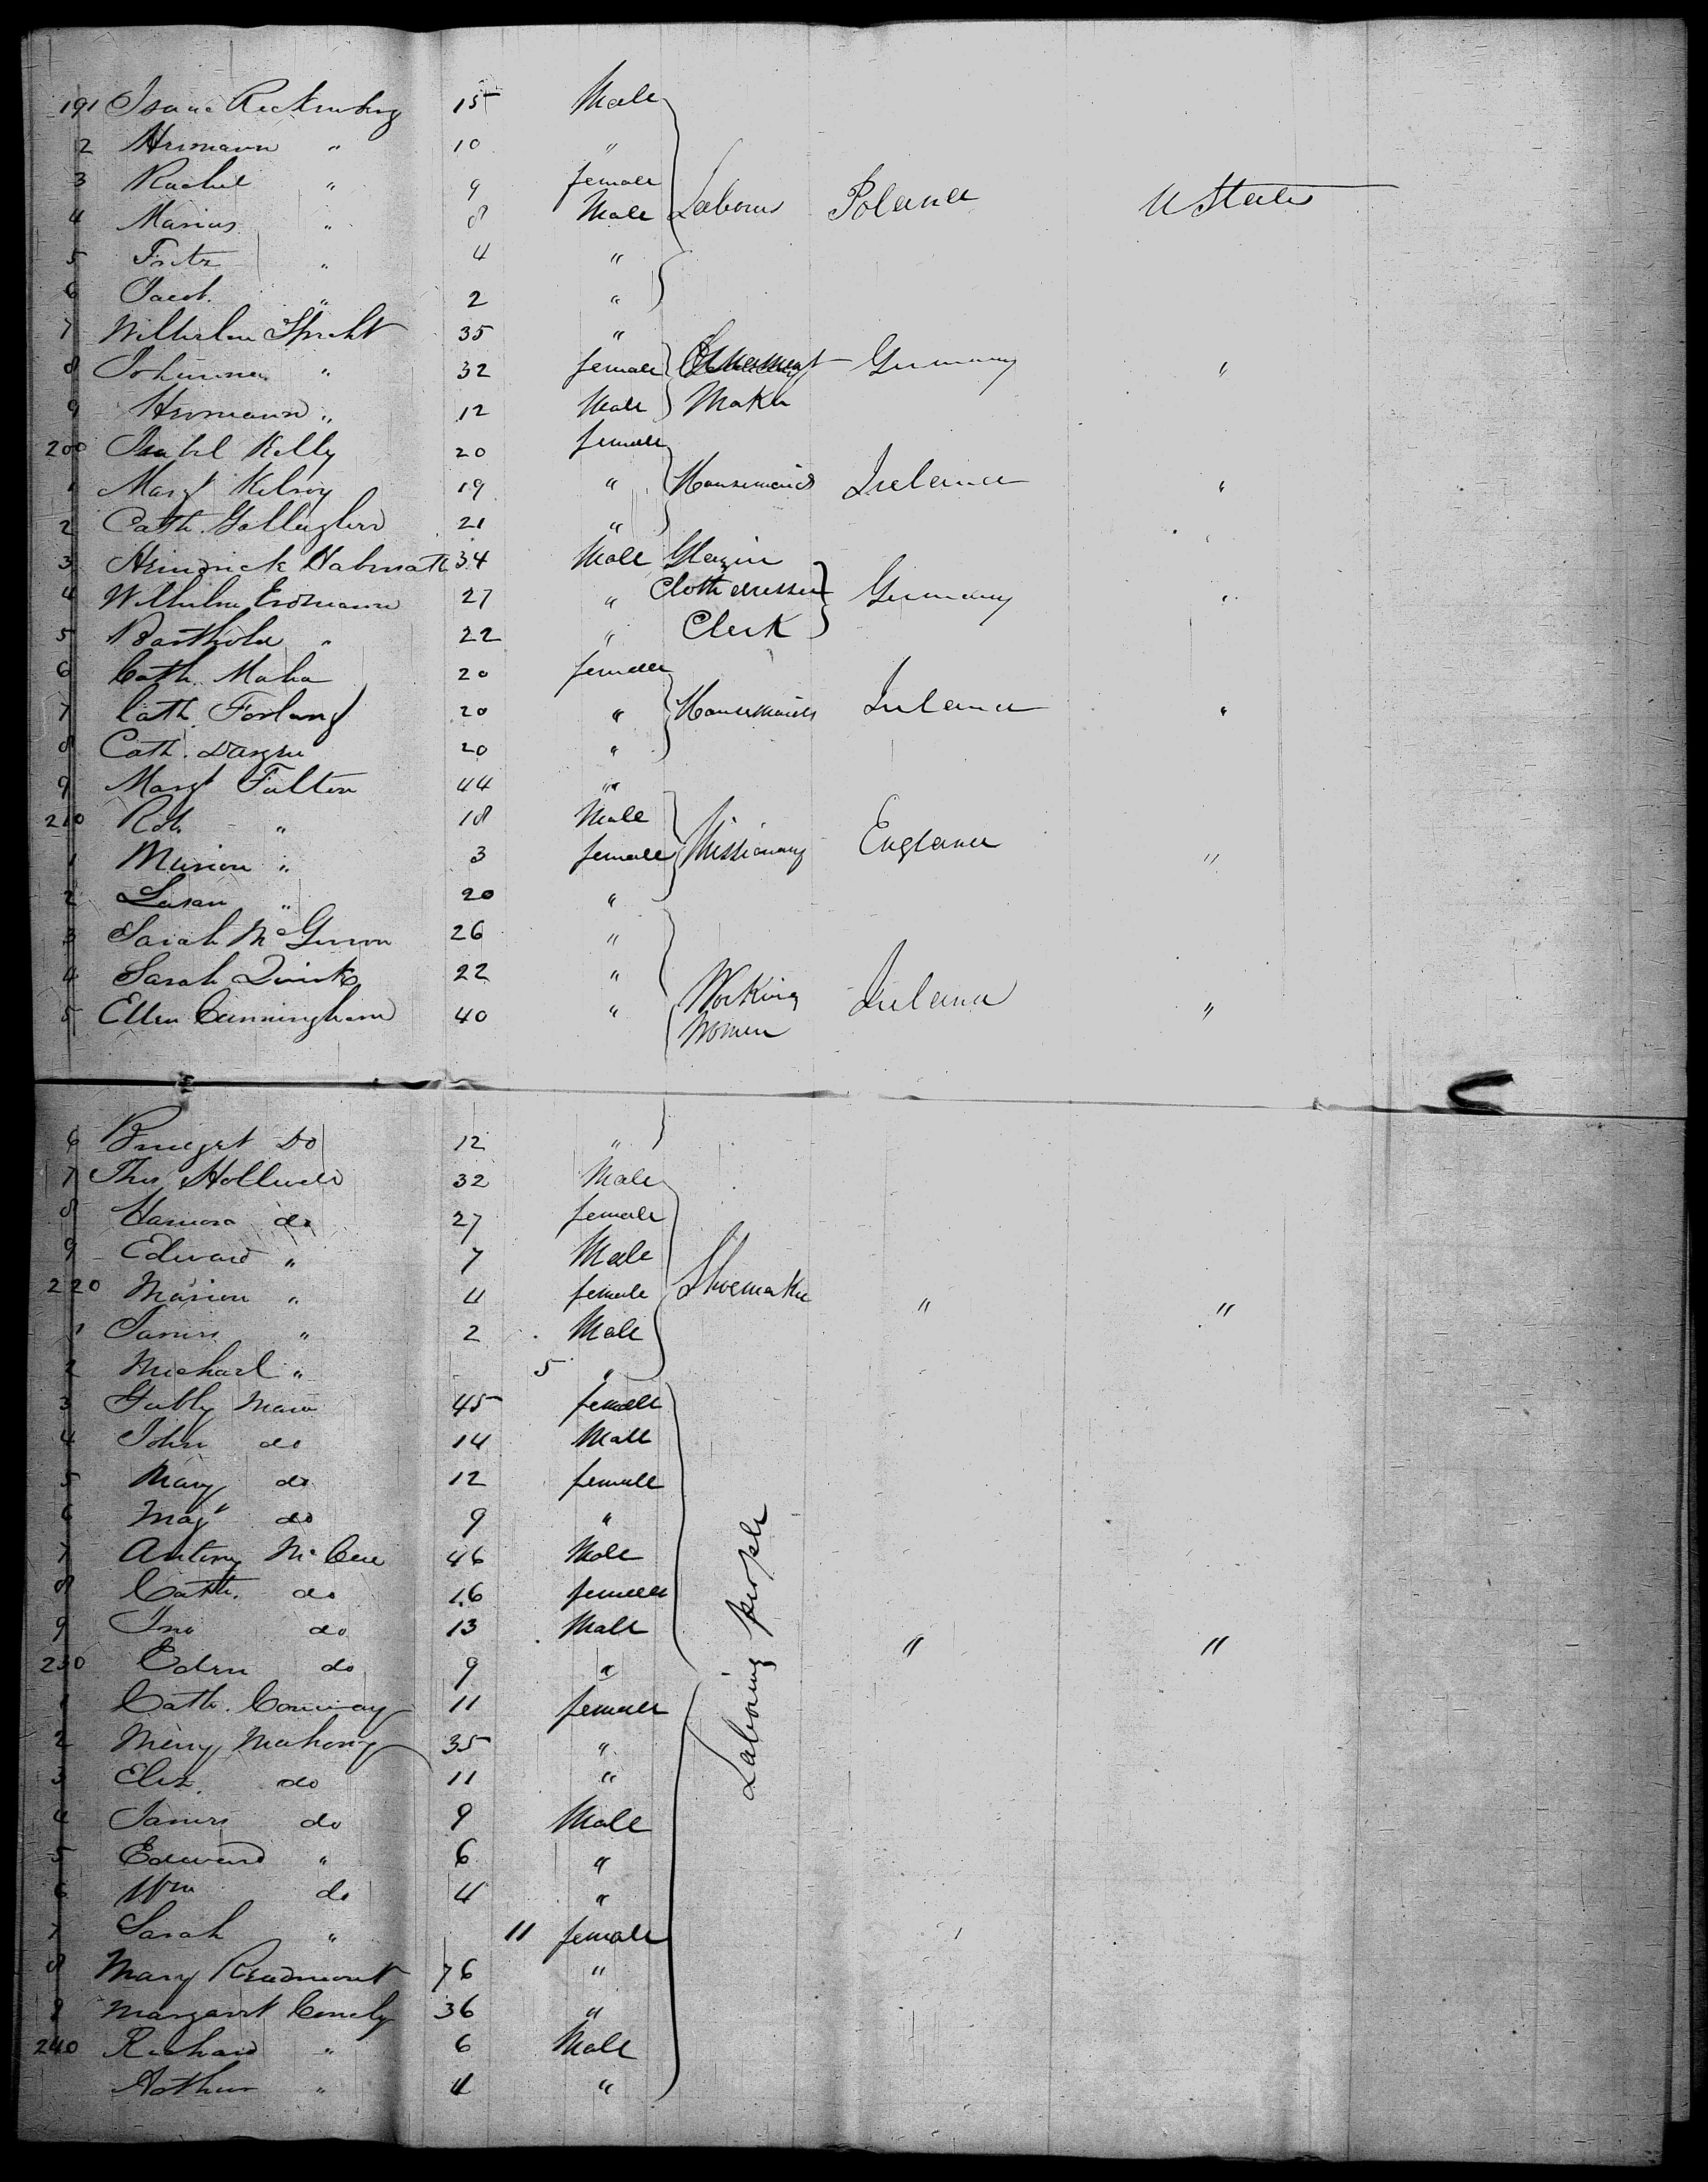 191 Isaac Reckenberg 15 Male
2 Hermann " 10 "
3 Rachel " 9 female
4 Marius " 8 Male Laborers Poland U States
5 Fritz " 4 "
6 Jacob " 2 "
7 Wilhelm Specht 35 "
8 Johanna " 32 female Germany "
9 Hermann " 12 Male Maker
200 Isabel Kelly 20 female
1 Margt Kilroy 19 " Housemaids Ireland "
2 Cath. Gallagher 21 "
3 Heindrick 34 Male Glazier
4 Wilhelm Erdmann 27 " Cloth dresser Germany "
5 Barthold " 22 " Clerk
6 Cath. Maha 20 female
7 Cath. 20 " Housemaids Ireland "
8 Cath. 20 "
9 Margt Fulton 44 "
210 Rob. " 18 Male
1 Marion " 3 female Missionary England "
2 Susan " 20 "
3 Sarah Mc 26 "
4 Sarah Quirk 22 " Working Ireland "
5 Ellen Cunningham 40 " Women
6 Bridget Do 12 "
7 Thos Hollwell 32 Male
8 Hanora do 27 female
9 Edward " 7 Male
220 Marion " 4 female Shoemaker " "
1 James " 2 Male
2 Michael " 5 "
3 45 female
4 John do 14 Male
5 Mary do 12 female
6 Mag do 9 "
7 Antony 46 Male
8 Cath. do 16 female
9 Jno do 13 Male Laboring people " "
230 Eden do 9 "
1 Cath. Conway 11 female
2 Mahony 35 "
3 Eliz. do 11 "
4 James do 9 Male
5 Edward " 6 "
6 Wm do 4 "
7 Sarah " 11 female
8 Mary 76 "
9 Margaret 36 "
240 Richard " 6 Male
Arthur " 4 "